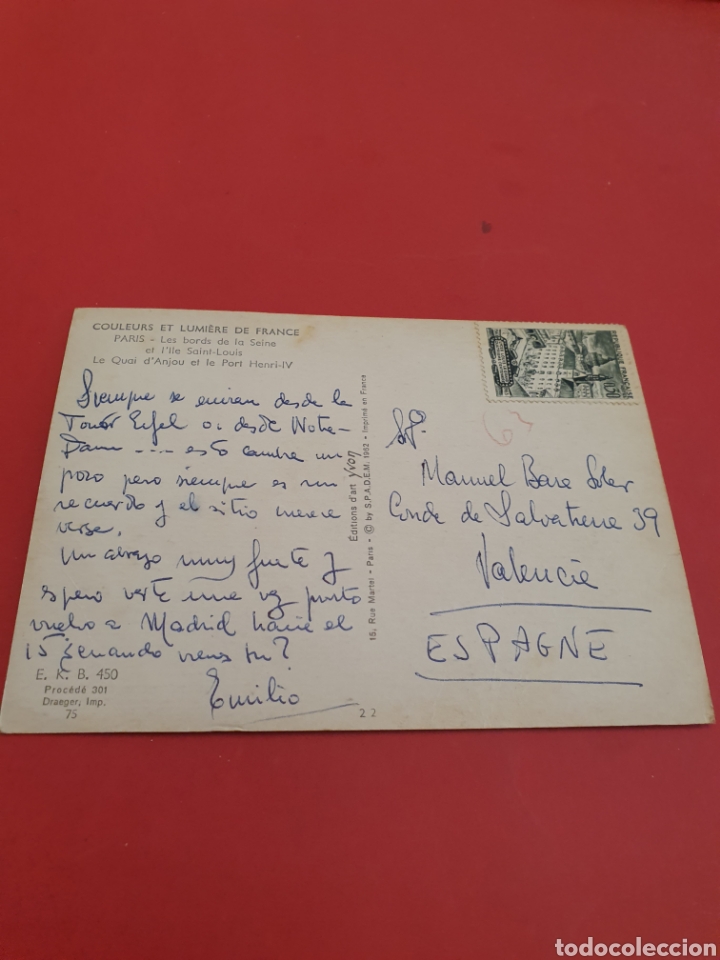 COULEURS ET LUMIÈRE DE FRANCE
PARIS - Les bords de la Seine
et l'île Saint-Louis
Le Quai d'Anjou et le Port Henri-IV
Siempre se envian desde la
Tour Eifel o desde Notre-
Dam --- esto cambia un
poco pero siempre es un
recuerdo y el sitio merece
verse.
Un abrazo muy fuerte y
espero verte una vez
vuelvo a Madrid hacia el
15 ¿cuando vienes tu?
Emilio
E. K. B. 450
Procédé 301
Draeger, Imp.
75
22
Éditions d'art yvon
15, Rue Martel - Paris - © by S.P.A.D.E.M. 1962 - Imprimé en France
63
Sr.
Manuel Bara Soler
Conde de Salvatierra 39
Valencia
ESPAGNE
todocoleccion